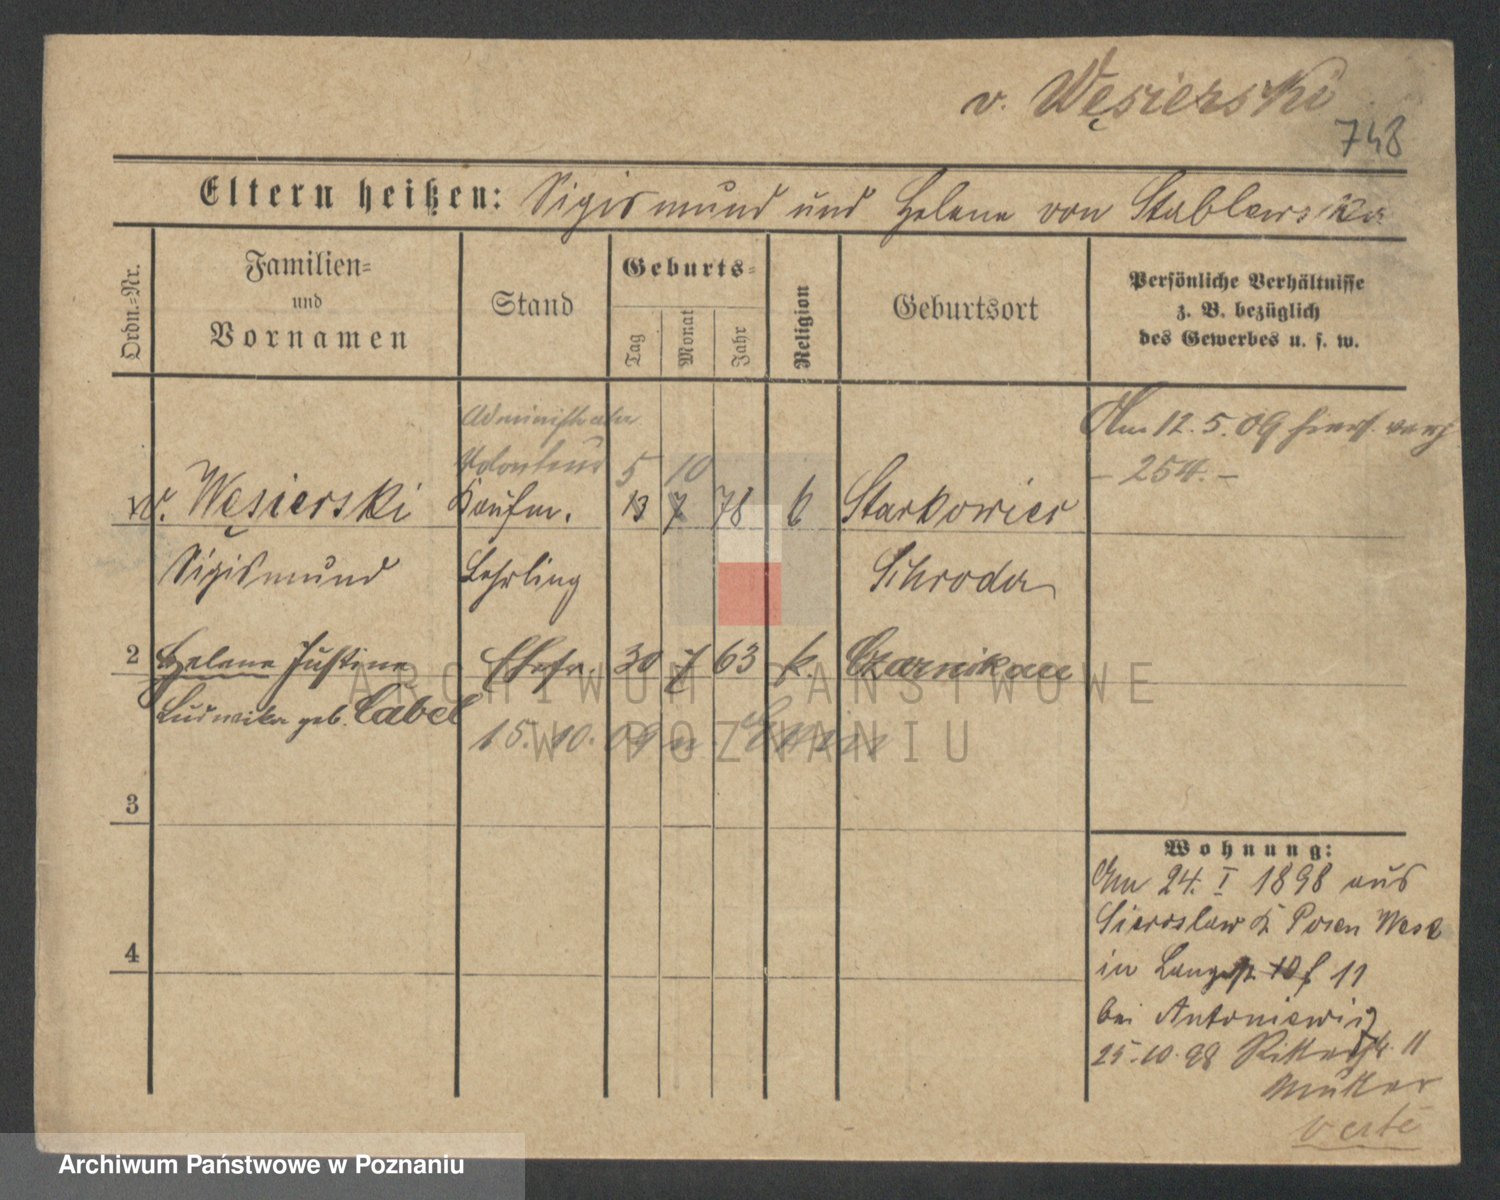 v. Węsierski
748
Eltern heißen: Sigismund und Helene von Stablewska
Ordn.=Nr.
Familien=
und
Vornamen
Stand
Geburts=
Tag
Monat
Jahr
Religion
Geburtsort
Persönliche Verhältnisse
z. B. bezüglich
des Gewerbes u. s. w.
Administrator
Volonteur 5 10
Am 12.5.09
- 254. -
v. Węsierski Kaufm. 13 7 78 k Starkowiec
Sigismund Lehrling Schroda
2 Helene Justine Ehefr. 30 7 63 k. Czarnikau
Ludwika geb. Cabel
15.10.09 n.
3
4
Wohnung:
Am 24. I 1898 aus
Sieroslaw Posen West
in Langestr. 10 f 11
bei Antoniewicz
25.10.98 Ritterstr. 11
Mutter
verte
ARCHIWUM PAŃSTWOWE
W POZNANIU
Archiwum Państwowe w Poznaniu